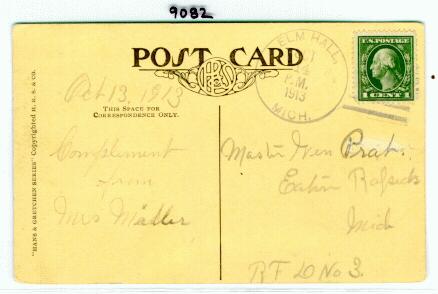 9082
POST CARD
ELM HALL,
P.M.
1913
MICH.
U.S. POSTAGE
1 CENT 1
Oct 13, 1913
THIS SPACE FOR
CORRESPONDENCE ONLY.
"HANS & GRETCHEN SERIES" Copyrighted H. R. S. & CO.
Complement
from
Mrs Muller
Master Pratt
Eaton
Mich
RFD No 3.